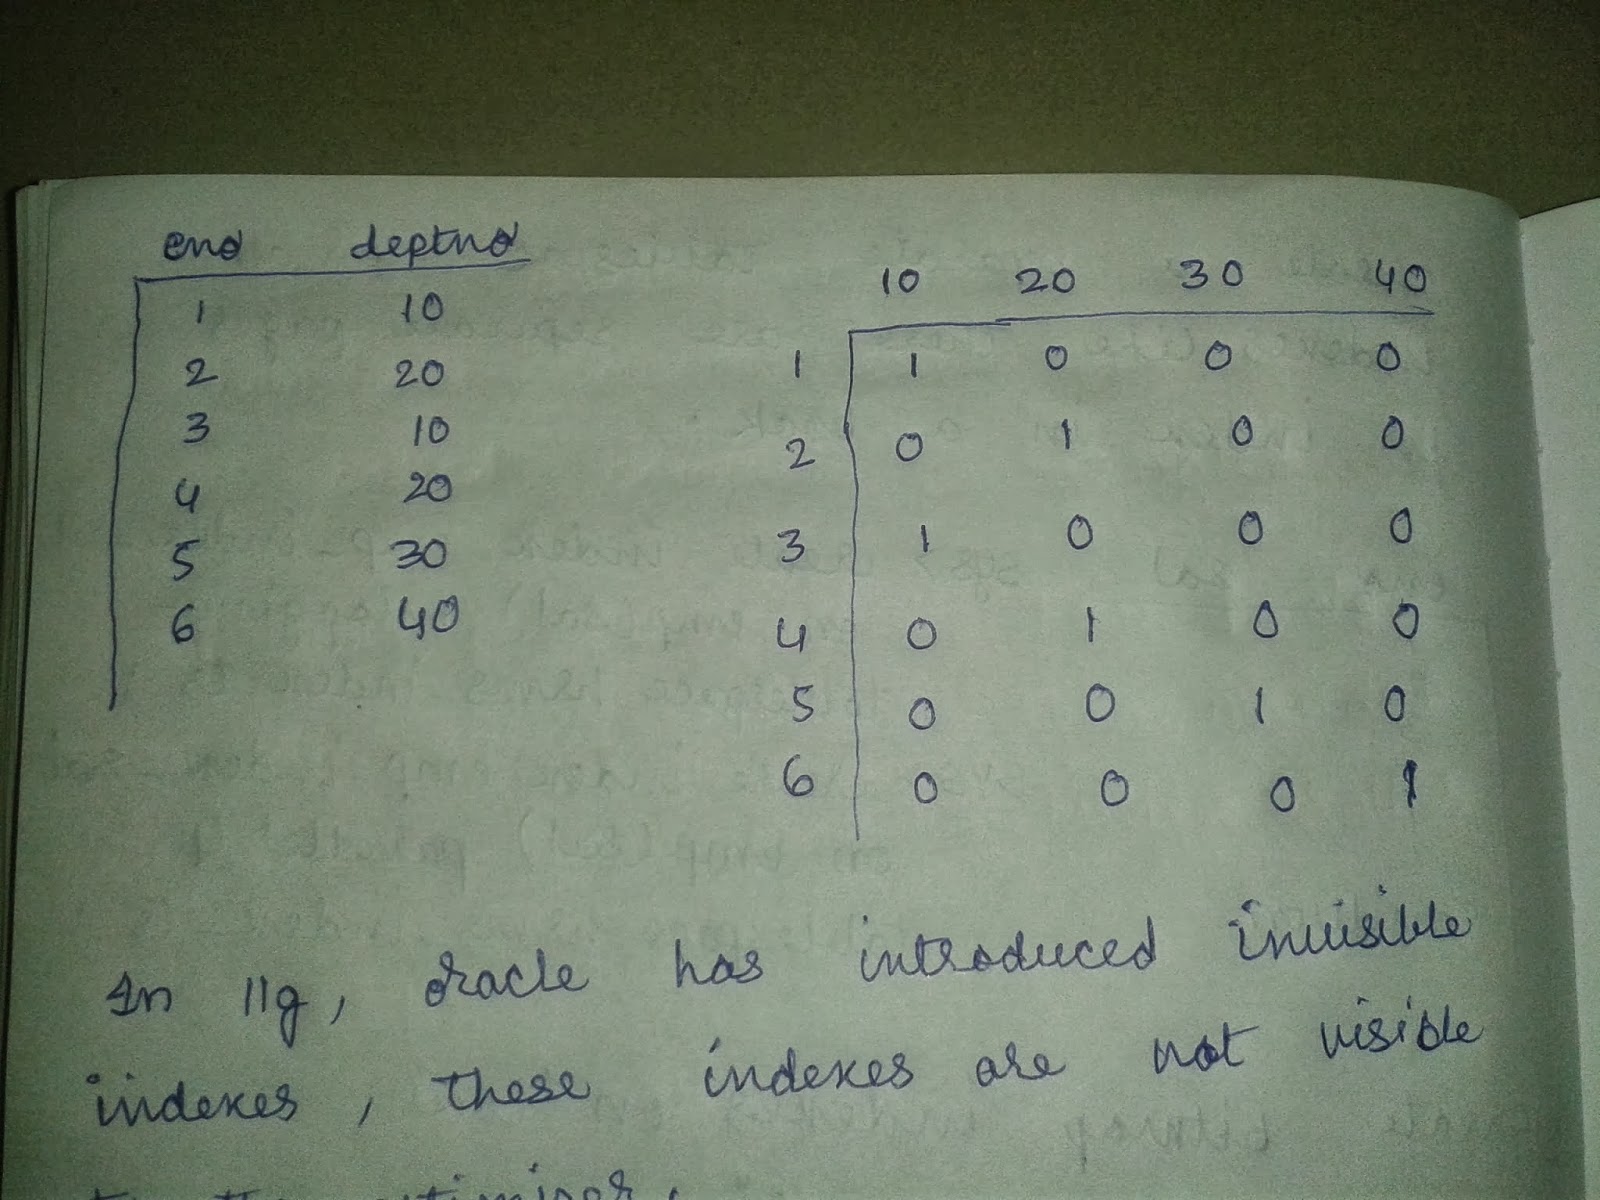 eno deptno
1 10
2 20
3 10
4 20
5 30
6 40
10 20 30 40
1 1 0 0 0
2 0 1 0 0
3 1 0 0 0
4 0 1 0 0
5 0 0 1 0
6 0 0 0 1
In 11g, oracle has introduced invisible
indexes, these indexes are not visible
to the optimiser.